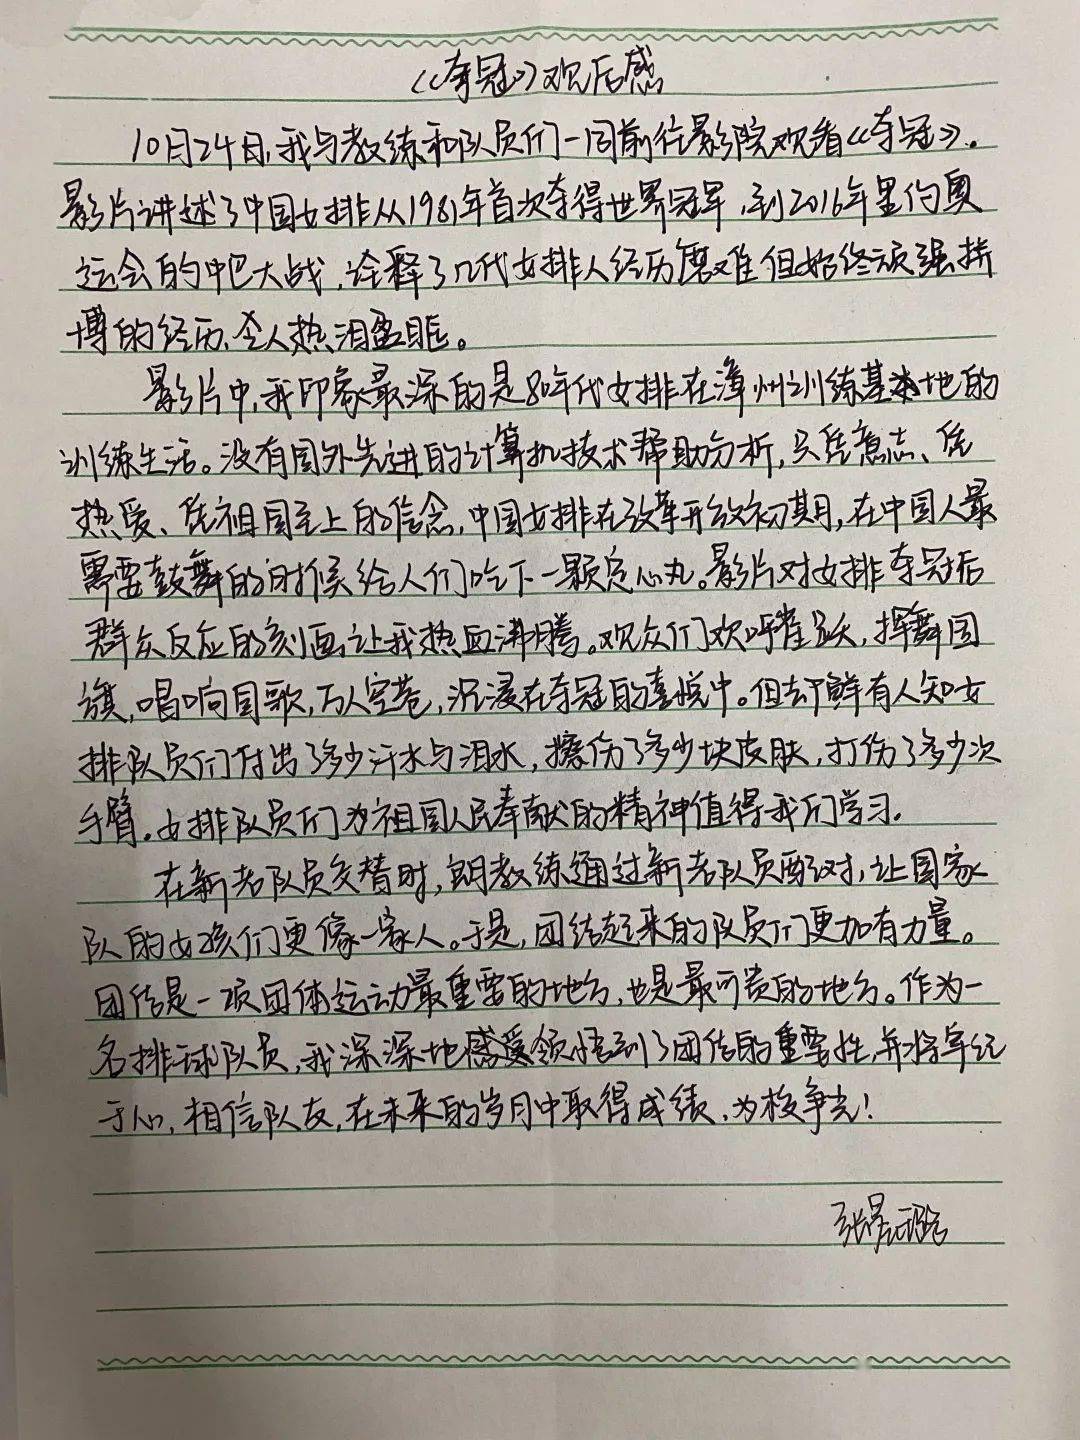 《夺冠》观后感
10月24日,我与教练和队员们一同前往影院观看《夺冠》.
影片讲述了中国女排从1981年首次夺得世界冠军,到2016年里约奥
运会的中巴大战,诠释了几代女排人经历磨难但始终顽强拼
博的经历,令人热泪盈眶。
影片中,我印象最深的是80年代女排在漳州训练基地的
训练生活。没有国外先进的计算机技术帮助分析,只凭意志、凭
热爱、凭祖国至上的信念,中国女排在改革开放初期,在中国人最
需要鼓舞的时候给人们吃下一颗定心丸。影片对女排夺冠后
群众反应的刻画,让我热血沸腾。观众们欢呼雀跃,挥舞国
旗,唱响国歌,万人空巷,沉浸在夺冠的喜悦中。但却鲜有人知女
排队员们付出了多少汗水与泪水,擦伤了多少块皮肤,打伤了多少次
手臂.女排队员们为祖国人民奉献的精神值得我们学习.
在新老队员交替时,郎教练通过新老队员配对,让国家
队的女孩们更像一家人。于是,团结起来的队员们更加有力量。
团结是一项团体运动最重要的地方,也是最可贵的地方。作为一
名排球队员,我深深地感受领悟到了团结的重要性,并将牢记
于心,相信队友,在未来的岁月中取得成绩,为校争光!
张